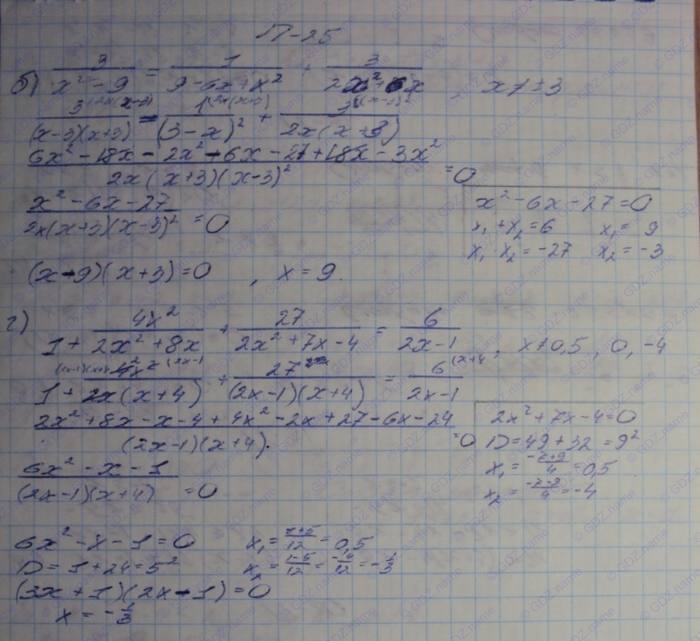 П-25
б) 3/(x²-9) = 1/(9-6x+x²) + 3/(2x²+6x), x≠±3
3/((x-3)(x+3)) = 1/(3-x)² + 3/(2x(x+3))
(6x²-18x-2x²-6x-27+18x-3x²)/(2x(x+3)(x-3)²) = 0
(x²-6x-27)/(2x(x+3)(x-3)²) = 0
x²-6x-27=0
x₁+x₂=6 x₁=9
x₁ x₂=-27 x₂=-3
(x-9)(x+3)=0, x=9.
г) 1 + 4x²/(2x²+8x) + 27/(2x²+7x-4) = 6/(2x-1), x≠0,5, 0, -4
1 + 4x²/(2x(x+4)) + 27/((2x-1)(x+4)) = 6/(2x-1)
(2x²+8x-x-4+4x²-2x+27-6x-24)/((2x-1)(x+4)) = 0
2x²+7x-4=0
D=49+32=9²
x₁=(-7+9)/4=0,5
x₂=(-7-9)/4=-4
(6x²-x-1)/((2x-1)(x+4)) = 0
6x²-x-1=0 x₁=/12=0,5
D=1+24=5² x₂=(1-5)/12=/12=-1/3
(3x+1)(2x-1)=0
x=-1/3
© GDZ.name